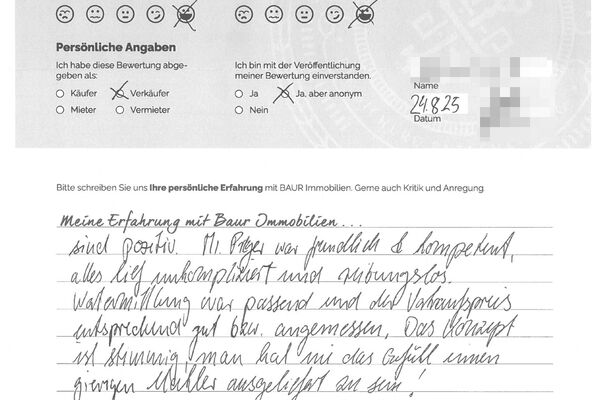 Persönliche Angaben
Ich habe diese Bewertung abge-
geben als:
Käufer Verkäufer
Mieter Vermieter
Ich bin mit der Veröffentlichung
meiner Bewertung einverstanden.
Ja Ja, aber anonym
Nein
Name
24.8.25
Datum
Bitte schreiben Sie uns Ihre persönliche Erfahrung mit BAUR Immobilien. Gerne auch Kritik und Anregung
Meine Erfahrung mit Baur Immobilien...
sind positiv. war freundlich & kompetent,
alles lief unkompliziert und reibungslos.
war passend und der Verkaufspreis
entsprechend gut bzw. angemessen. Das Konzept
ist stimmig, man hat nie das Gefühl einem
gierigen Makler ausgeliefert zu sein!